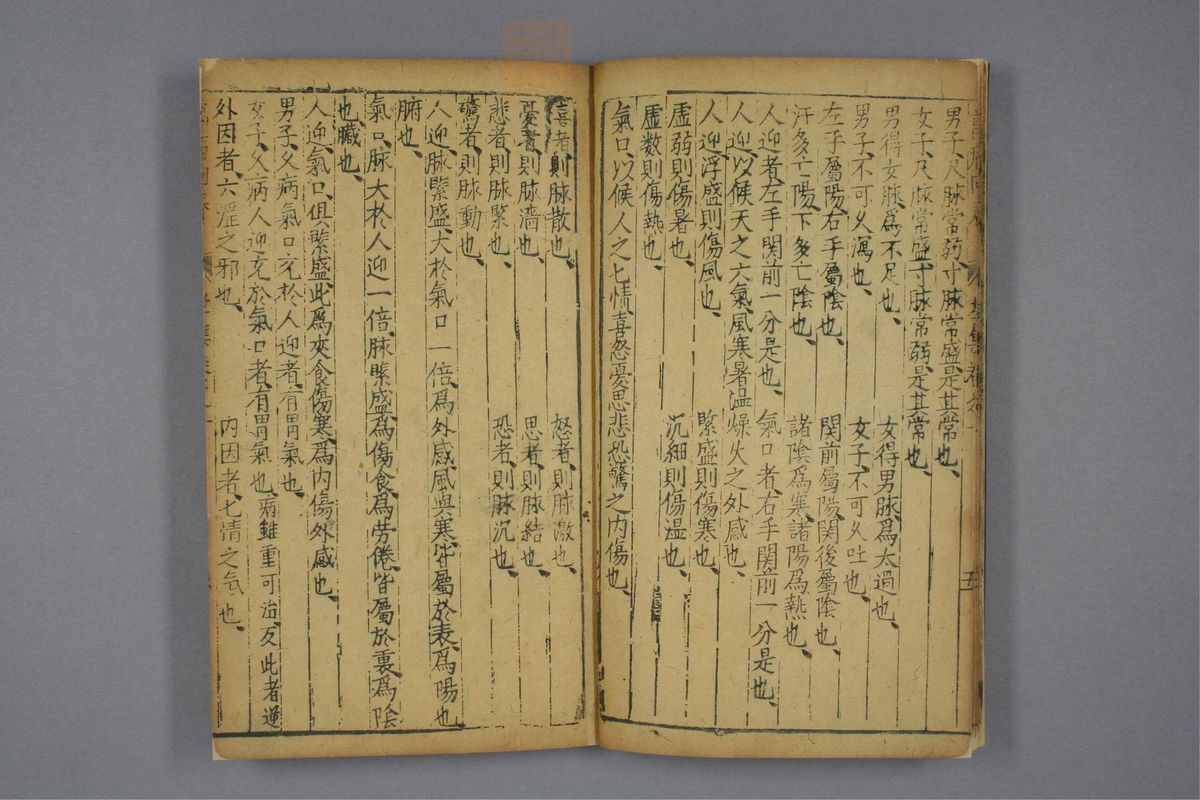 男子、尺脉常弱、寸脉常盛、是其常也、
女子、尺脉常盛、寸脉常弱、是其常也、
男得女脉、爲不足也、 女得男脉、爲太過也、
男子、不可久瀉也、 女子、不可久吐也、
左手屬陽、右手屬陰也、 関前屬陽、関後屬陰也、
汗多亡陽、下多亡陰也、 諸陰爲寒、諸陽爲熱也、
人迎者、左手関前一分是也、 氣口者、右手関前一分是也、
人迎、以候天之六氣、風寒暑温燥火之外感也、
人迎、浮盛則傷風也、 緊盛則傷寒也、
虚弱則傷暑也、 沉細則傷温也、
虚数則傷熱也、
氣口、以候人之七情、喜怒憂思悲恐驚之内傷也、
喜者、則脉散也、 怒者、則脉激也、
憂者、則脉濇也、 思者、則脉結也、
悲者、則脉緊也、 恐者、則脉沉也、
驚者、則脉動也、
人迎、脉緊盛、大於氣口一倍、爲外感風與寒、皆屬於表、爲陽也、
腑也、
氣口、脉大於人迎一倍、脉緊盛、爲傷食、爲労倦、皆屬於裏、爲陰
也、臓也、
人迎、氣口、俱緊盛、此爲夾食傷寒、爲内傷外感也、
男子、久病氣口充於人迎者、有胃氣也、
女子、久病人迎充於氣口者、有胃氣也、病雖重可治、反此者逆
外因者、六淫之邪也、 内因者、七情之気也、